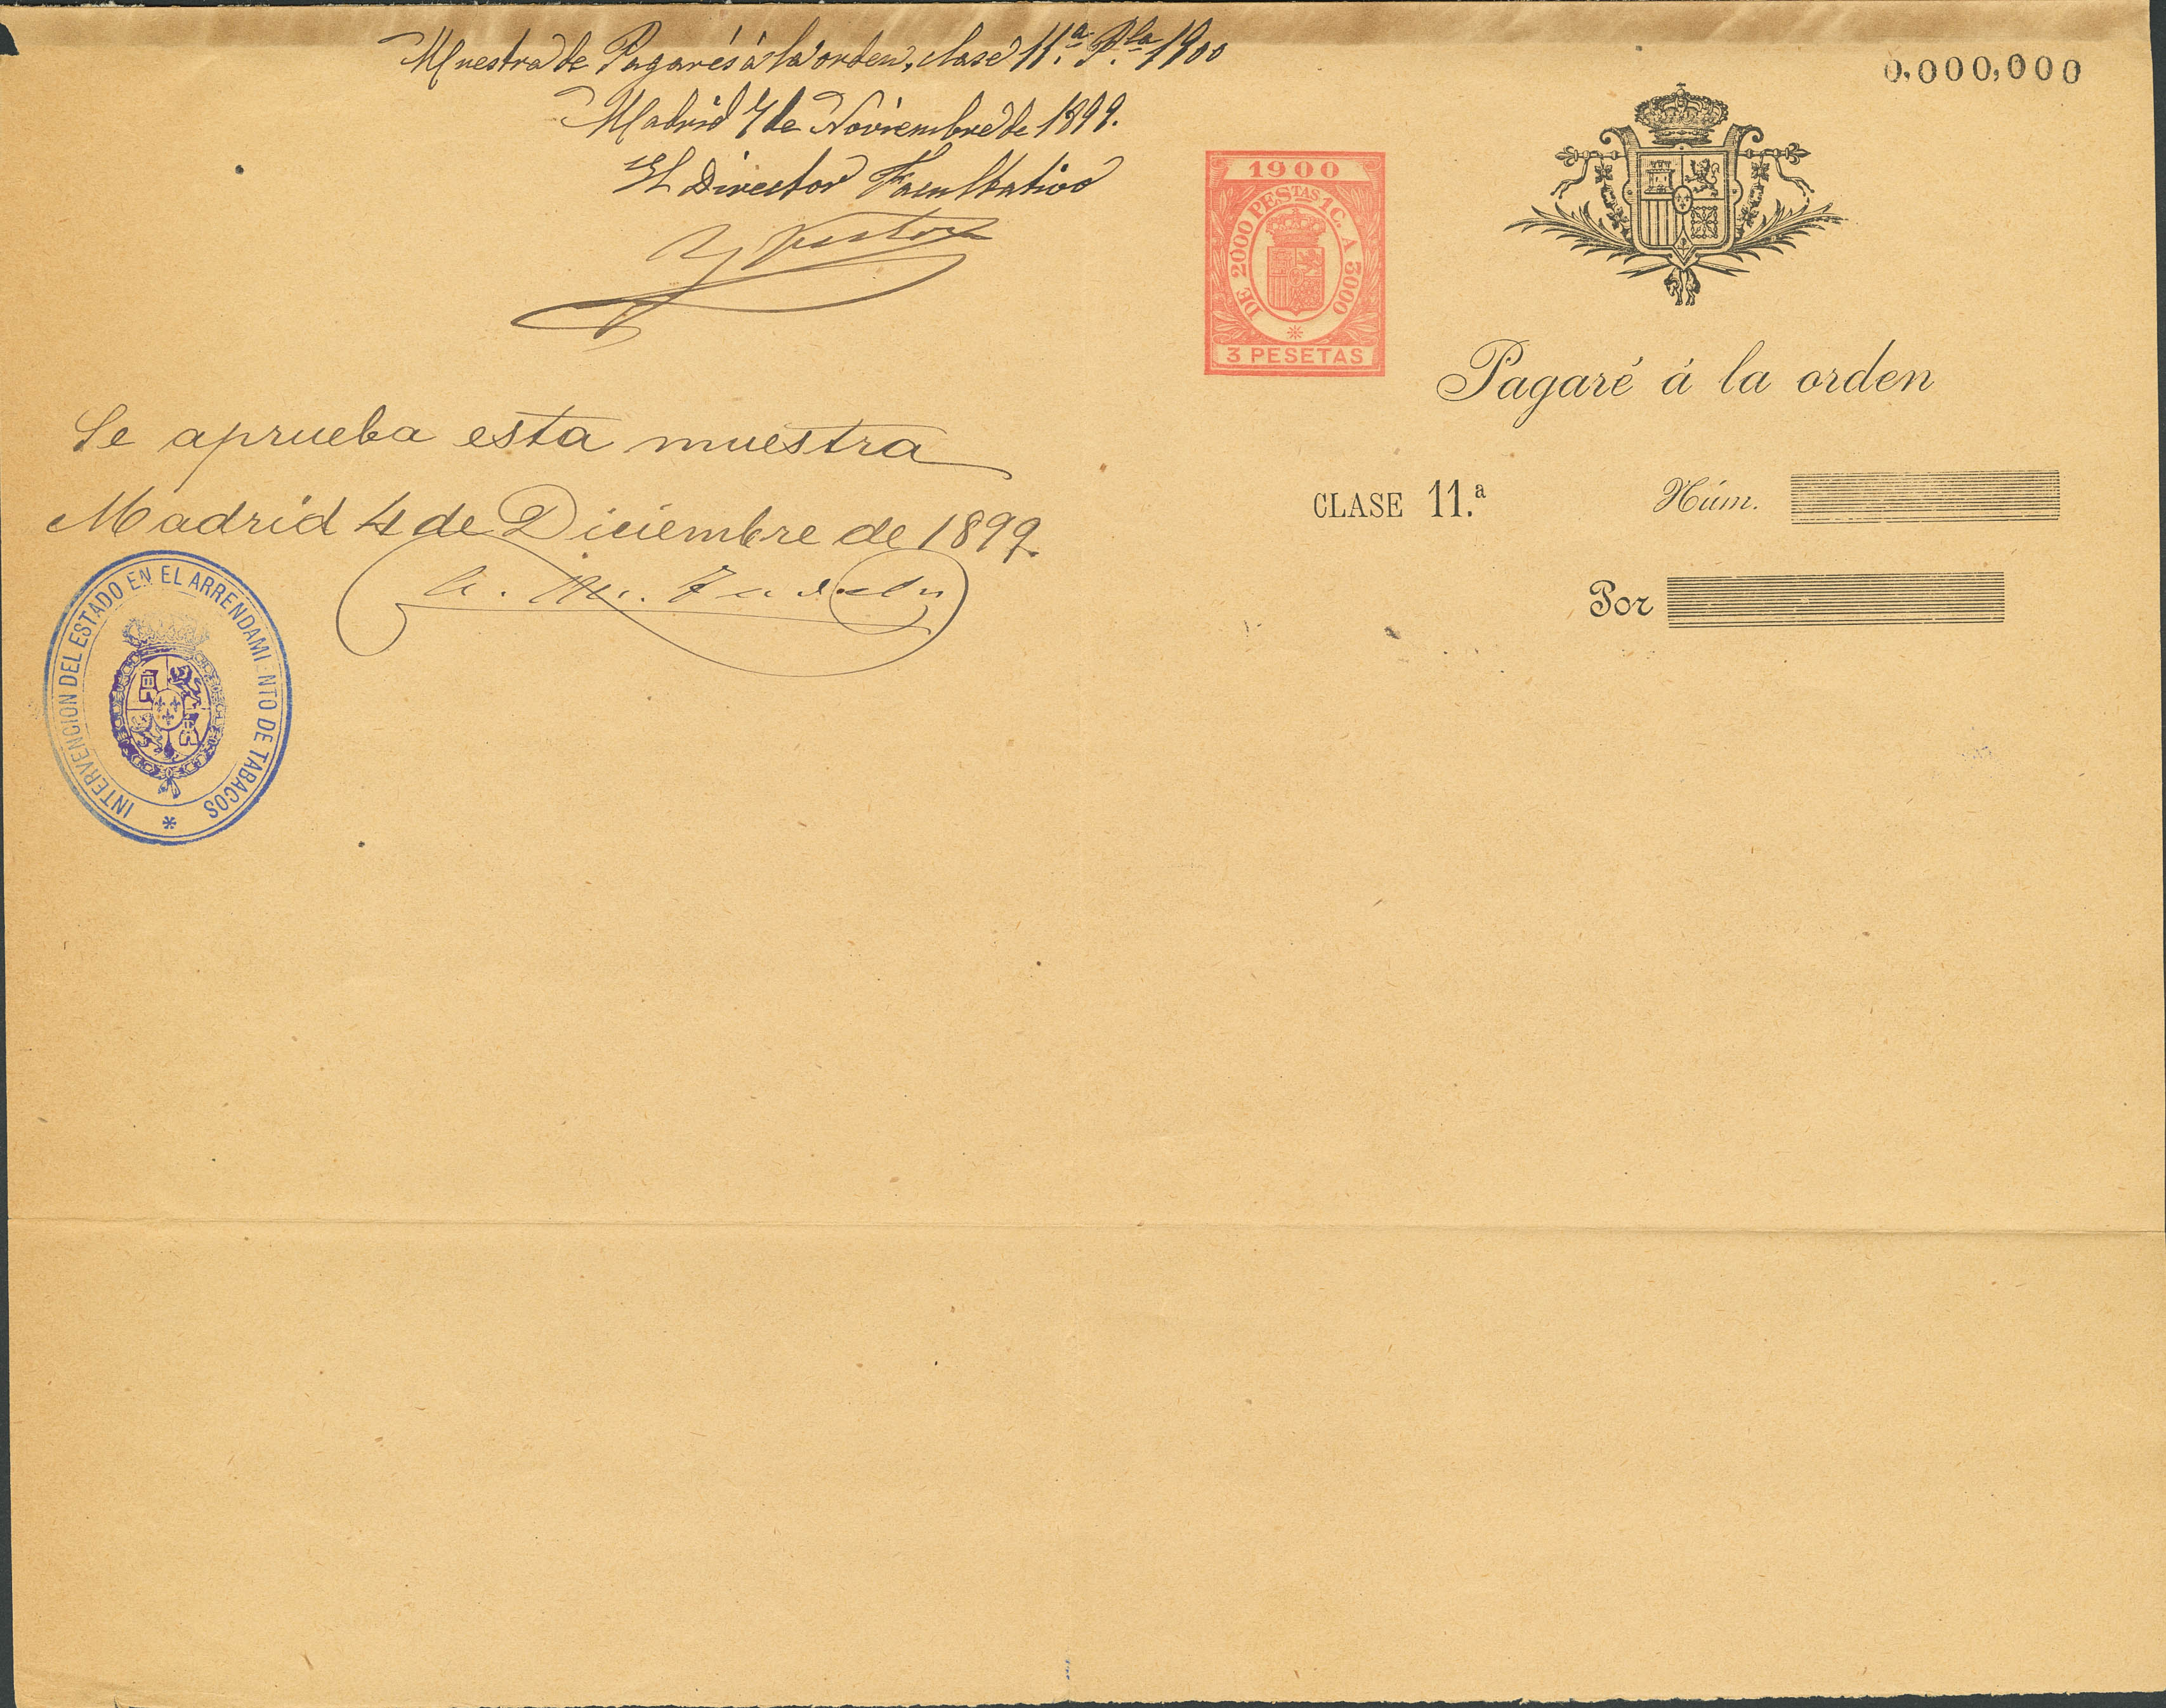 Muestra de Pagarés á la orden, clase 11.ª P.la 1900
Madrid 7 de Noviembre de 1899.
El Director Facultativo
Se aprueba esta muestra
Madrid 4 de Diciembre de 1899.
INTERVENCION DEL ESTADO EN EL ARRENDAMI NTO DE TABACOS *
1900
DE 2000 PESTAS 1C. A 5000
3 PESETAS
0,000,000
Pagaré á la orden
CLASE 11.ª
Núm.
Por